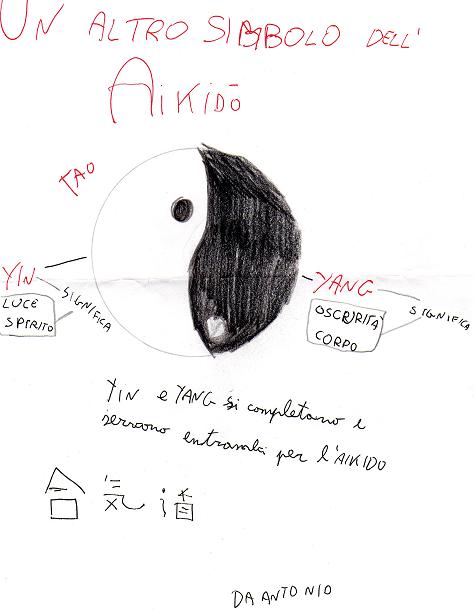 UN ALTRO SIMBOLO DELL'
AIKIDŌ
TAO
YIN
SIGNIFICA
LUCE
SPIRITO
YANG
SIGNIFICA
OSCURITÀ
CORPO
YIN e YANG si completano e
servono entrambi per l'AIKIDO
合気道
DA ANTONIO